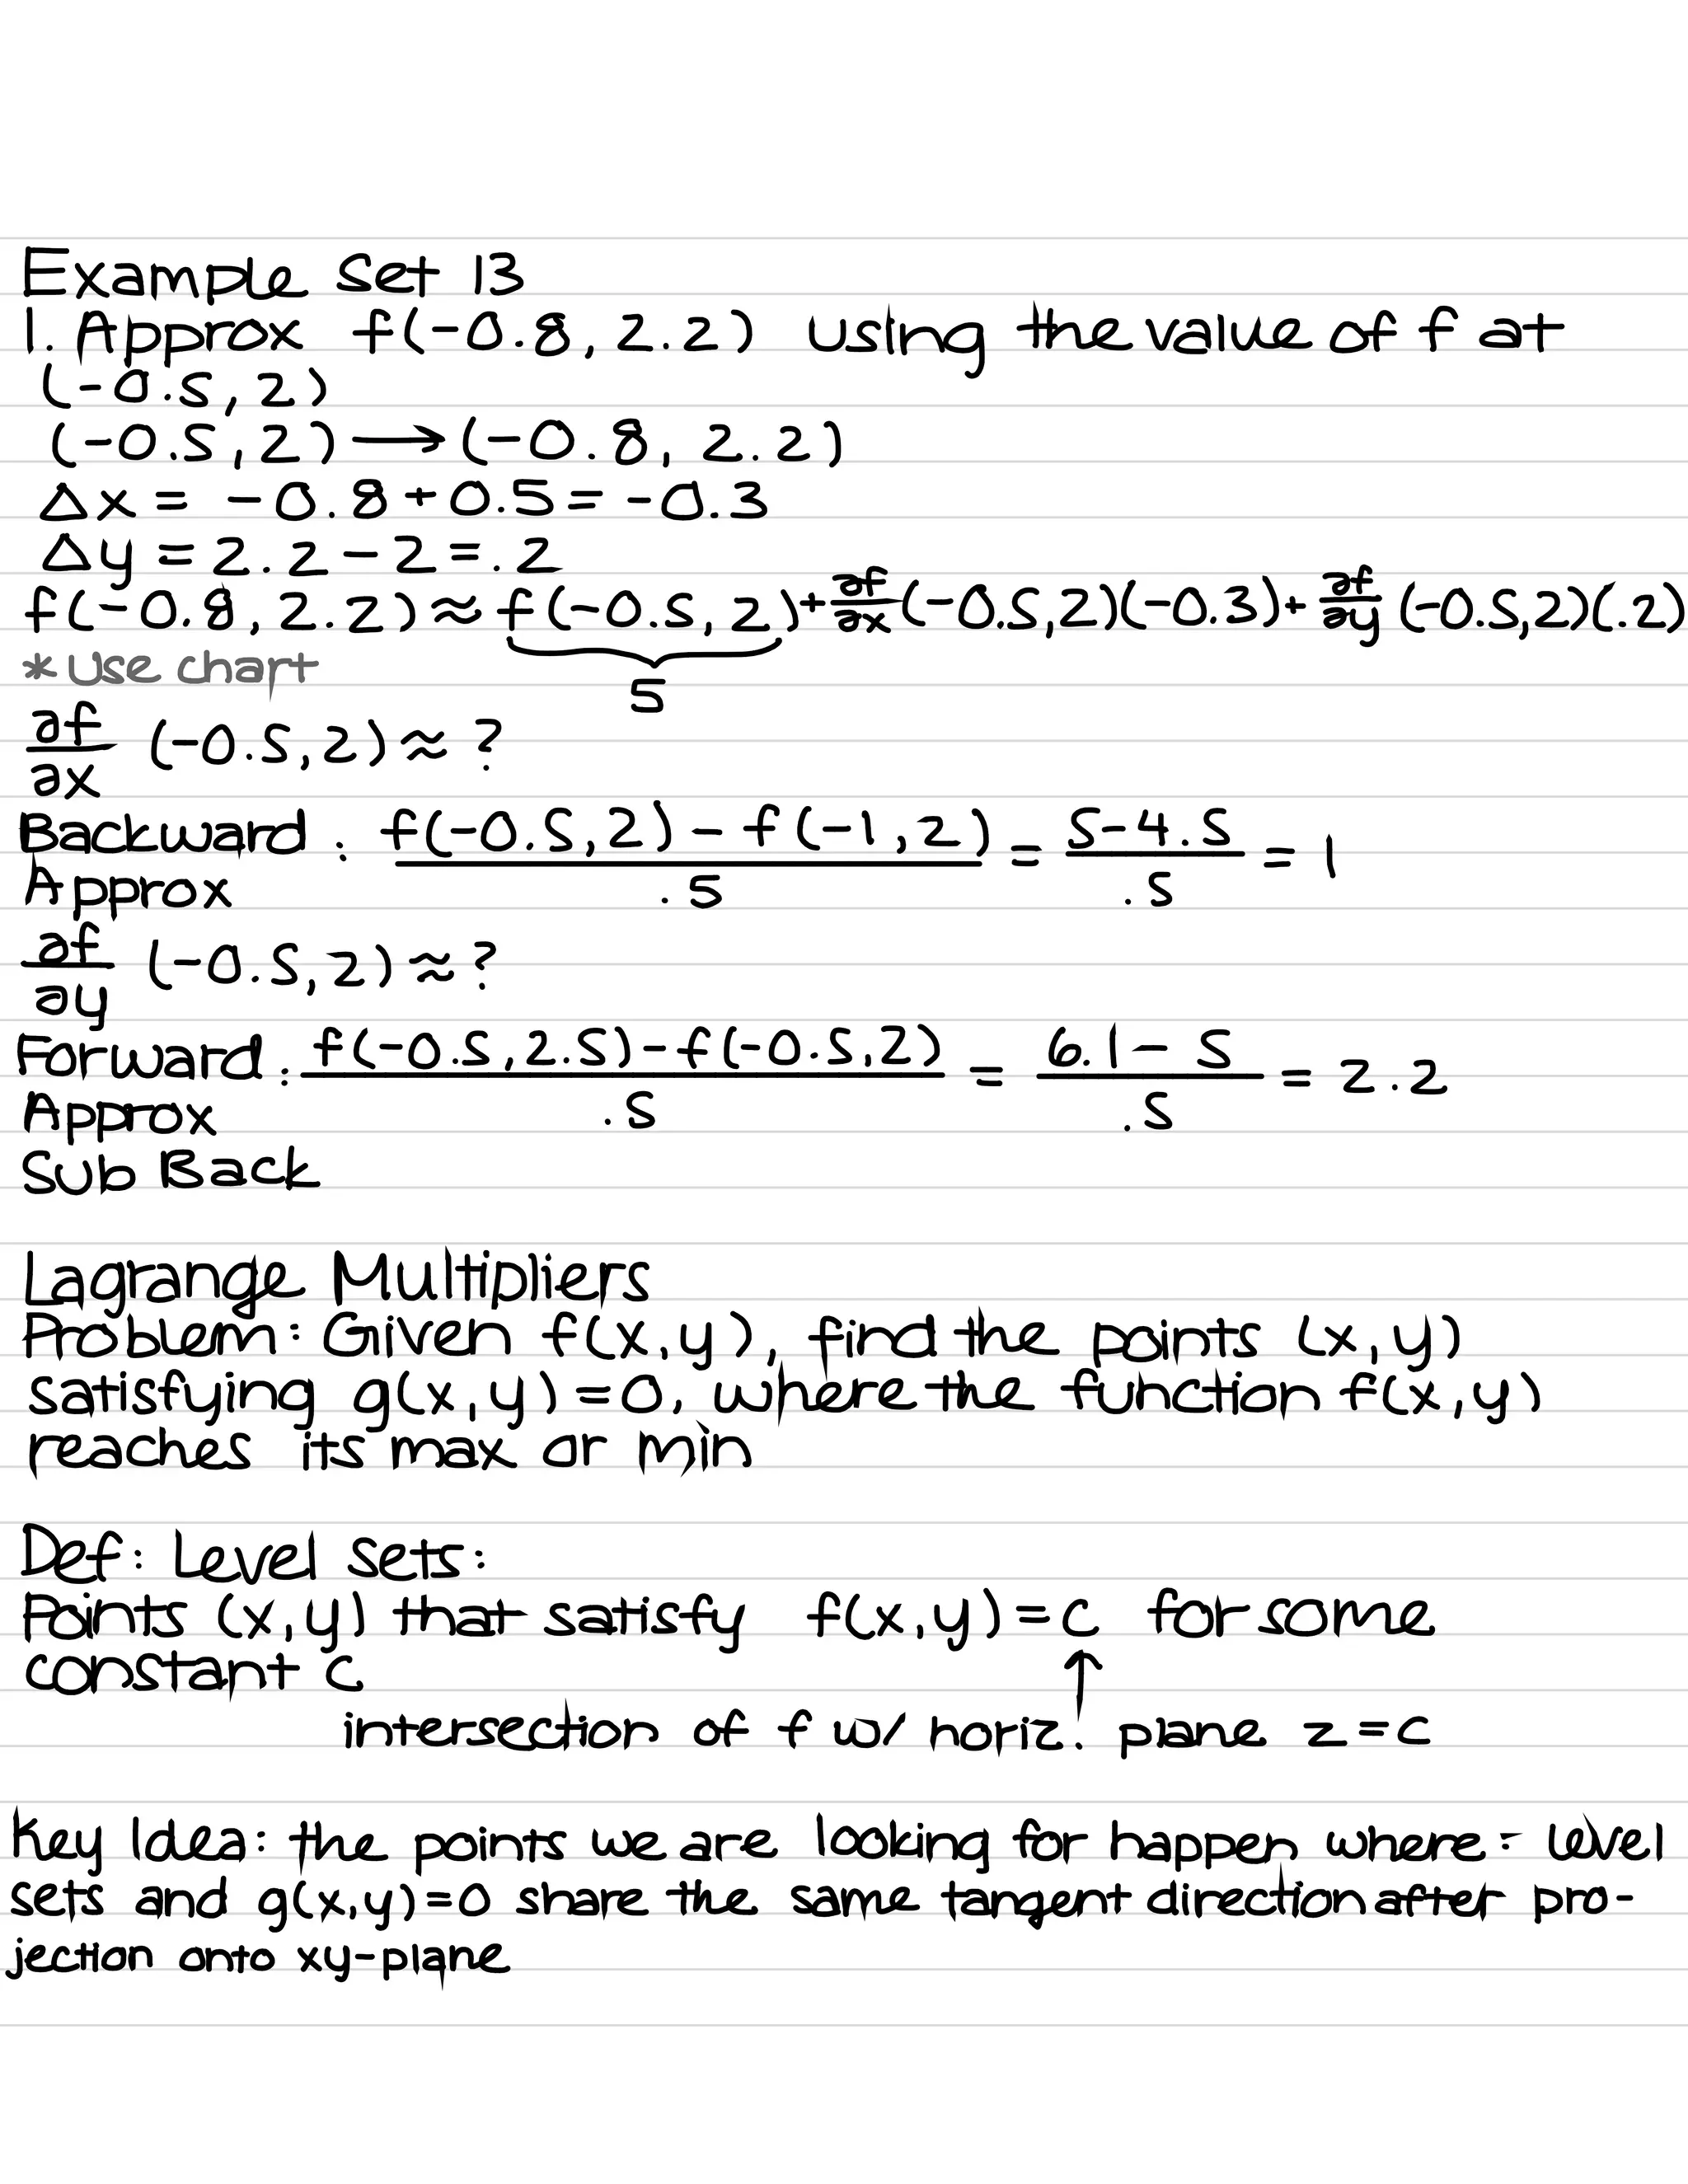 Example Set 13
1. Approx f(-0.8, 2.2) using the value of f at
(-0.5, 2)
(-0.5, 2) → (-0.8, 2.2)
Δx = -0.8 + 0.5 = -0.3
Δy = 2.2 - 2 = .2
f(-0.8, 2.2) ≈ f(-0.5, 2) + ∂f/∂x (-0.5, 2)(-0.3) + ∂f/∂y (-0.5, 2)(.2)
* Use chart
5
∂f/∂x (-0.5, 2) ≈ ?
Backward Approx : f(-0.5, 2) - f(-1, 2) / .5 = 5 - 4.5 / .5 = 1
∂f/∂y (-0.5, 2) ≈ ?
Forward Approx : f(-0.5, 2.5) - f(-0.5, 2) / .5 = 6.1 - 5 / .5 = 2.2
Sub Back
Lagrange Multipliers
Problem: Given f(x, y), find the points (x, y)
satisfying g(x, y) = 0, where the function f(x, y)
reaches its max or min
Def: Level Sets:
Points (x, y) that satisfy f(x, y) = c for some
constant c ↑
intersection of f w/ horiz. plane z = c
Key Idea: the points we are looking for happen where: level
sets and g(x, y) = 0 share the same tangent direction after pro-
jection onto xy-plane